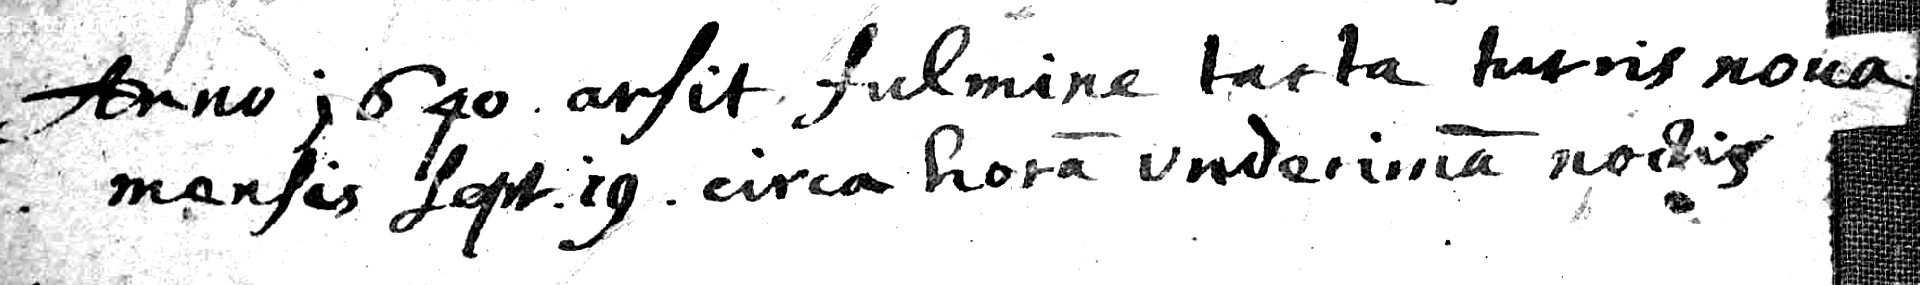 Anno j640. arsit fulmine tacta turris noua
mensis Sept. 19. circa horā vndecimā noctis